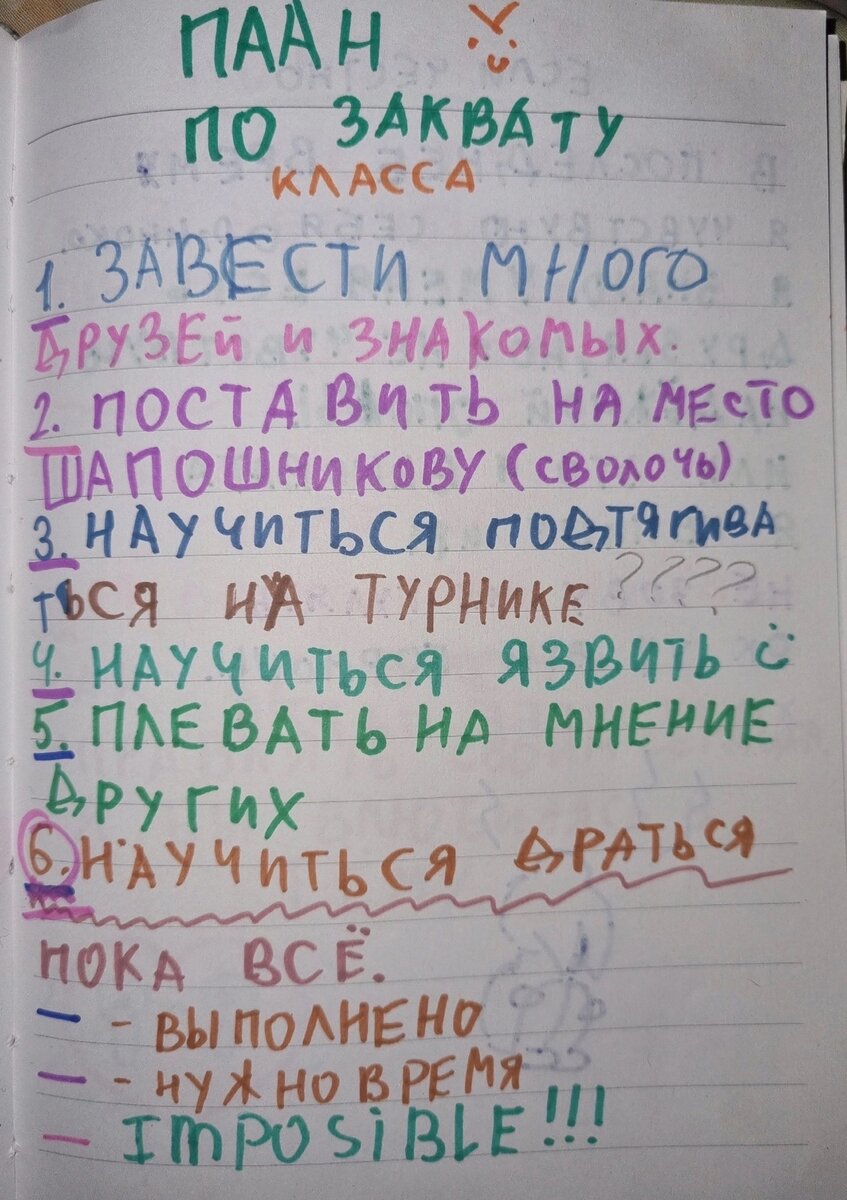 ПЛАН
ПО ЗАКВАТУ
КЛАССА
1. ЗАВЕСТИ МНОГО
ДРУЗЕЙ И ЗНАКОМЫХ.
2. ПОСТАВИТЬ НА МЕСТО
ШАПОШНИКОВУ (СВОЛОЧЬ)
3. НАУЧИТЬСЯ ПОДТЯГИВА
ТЬСЯ НА ТУРНИКЕ ????
4. НАУЧИТЬСЯ ЯЗВИТЬ
5. ПЛЕВАТЬ НА МНЕНИЕ
ДРУГИХ
6. НАУЧИТЬСЯ ДРАТЬСЯ
ПОКА ВСЁ.
— - ВЫПОЛНЕНО
— - НУЖНО ВРЕМЯ
— IMPOSiBLE!!!